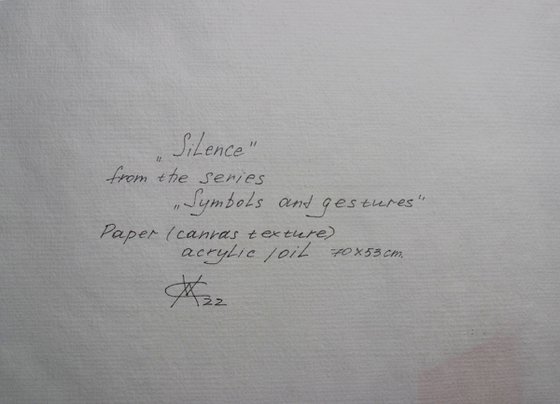 „Silence"
from the series
„Symbols and gestures"
Paper (canvas texture)
acrylic /oil 70x53cm.
22